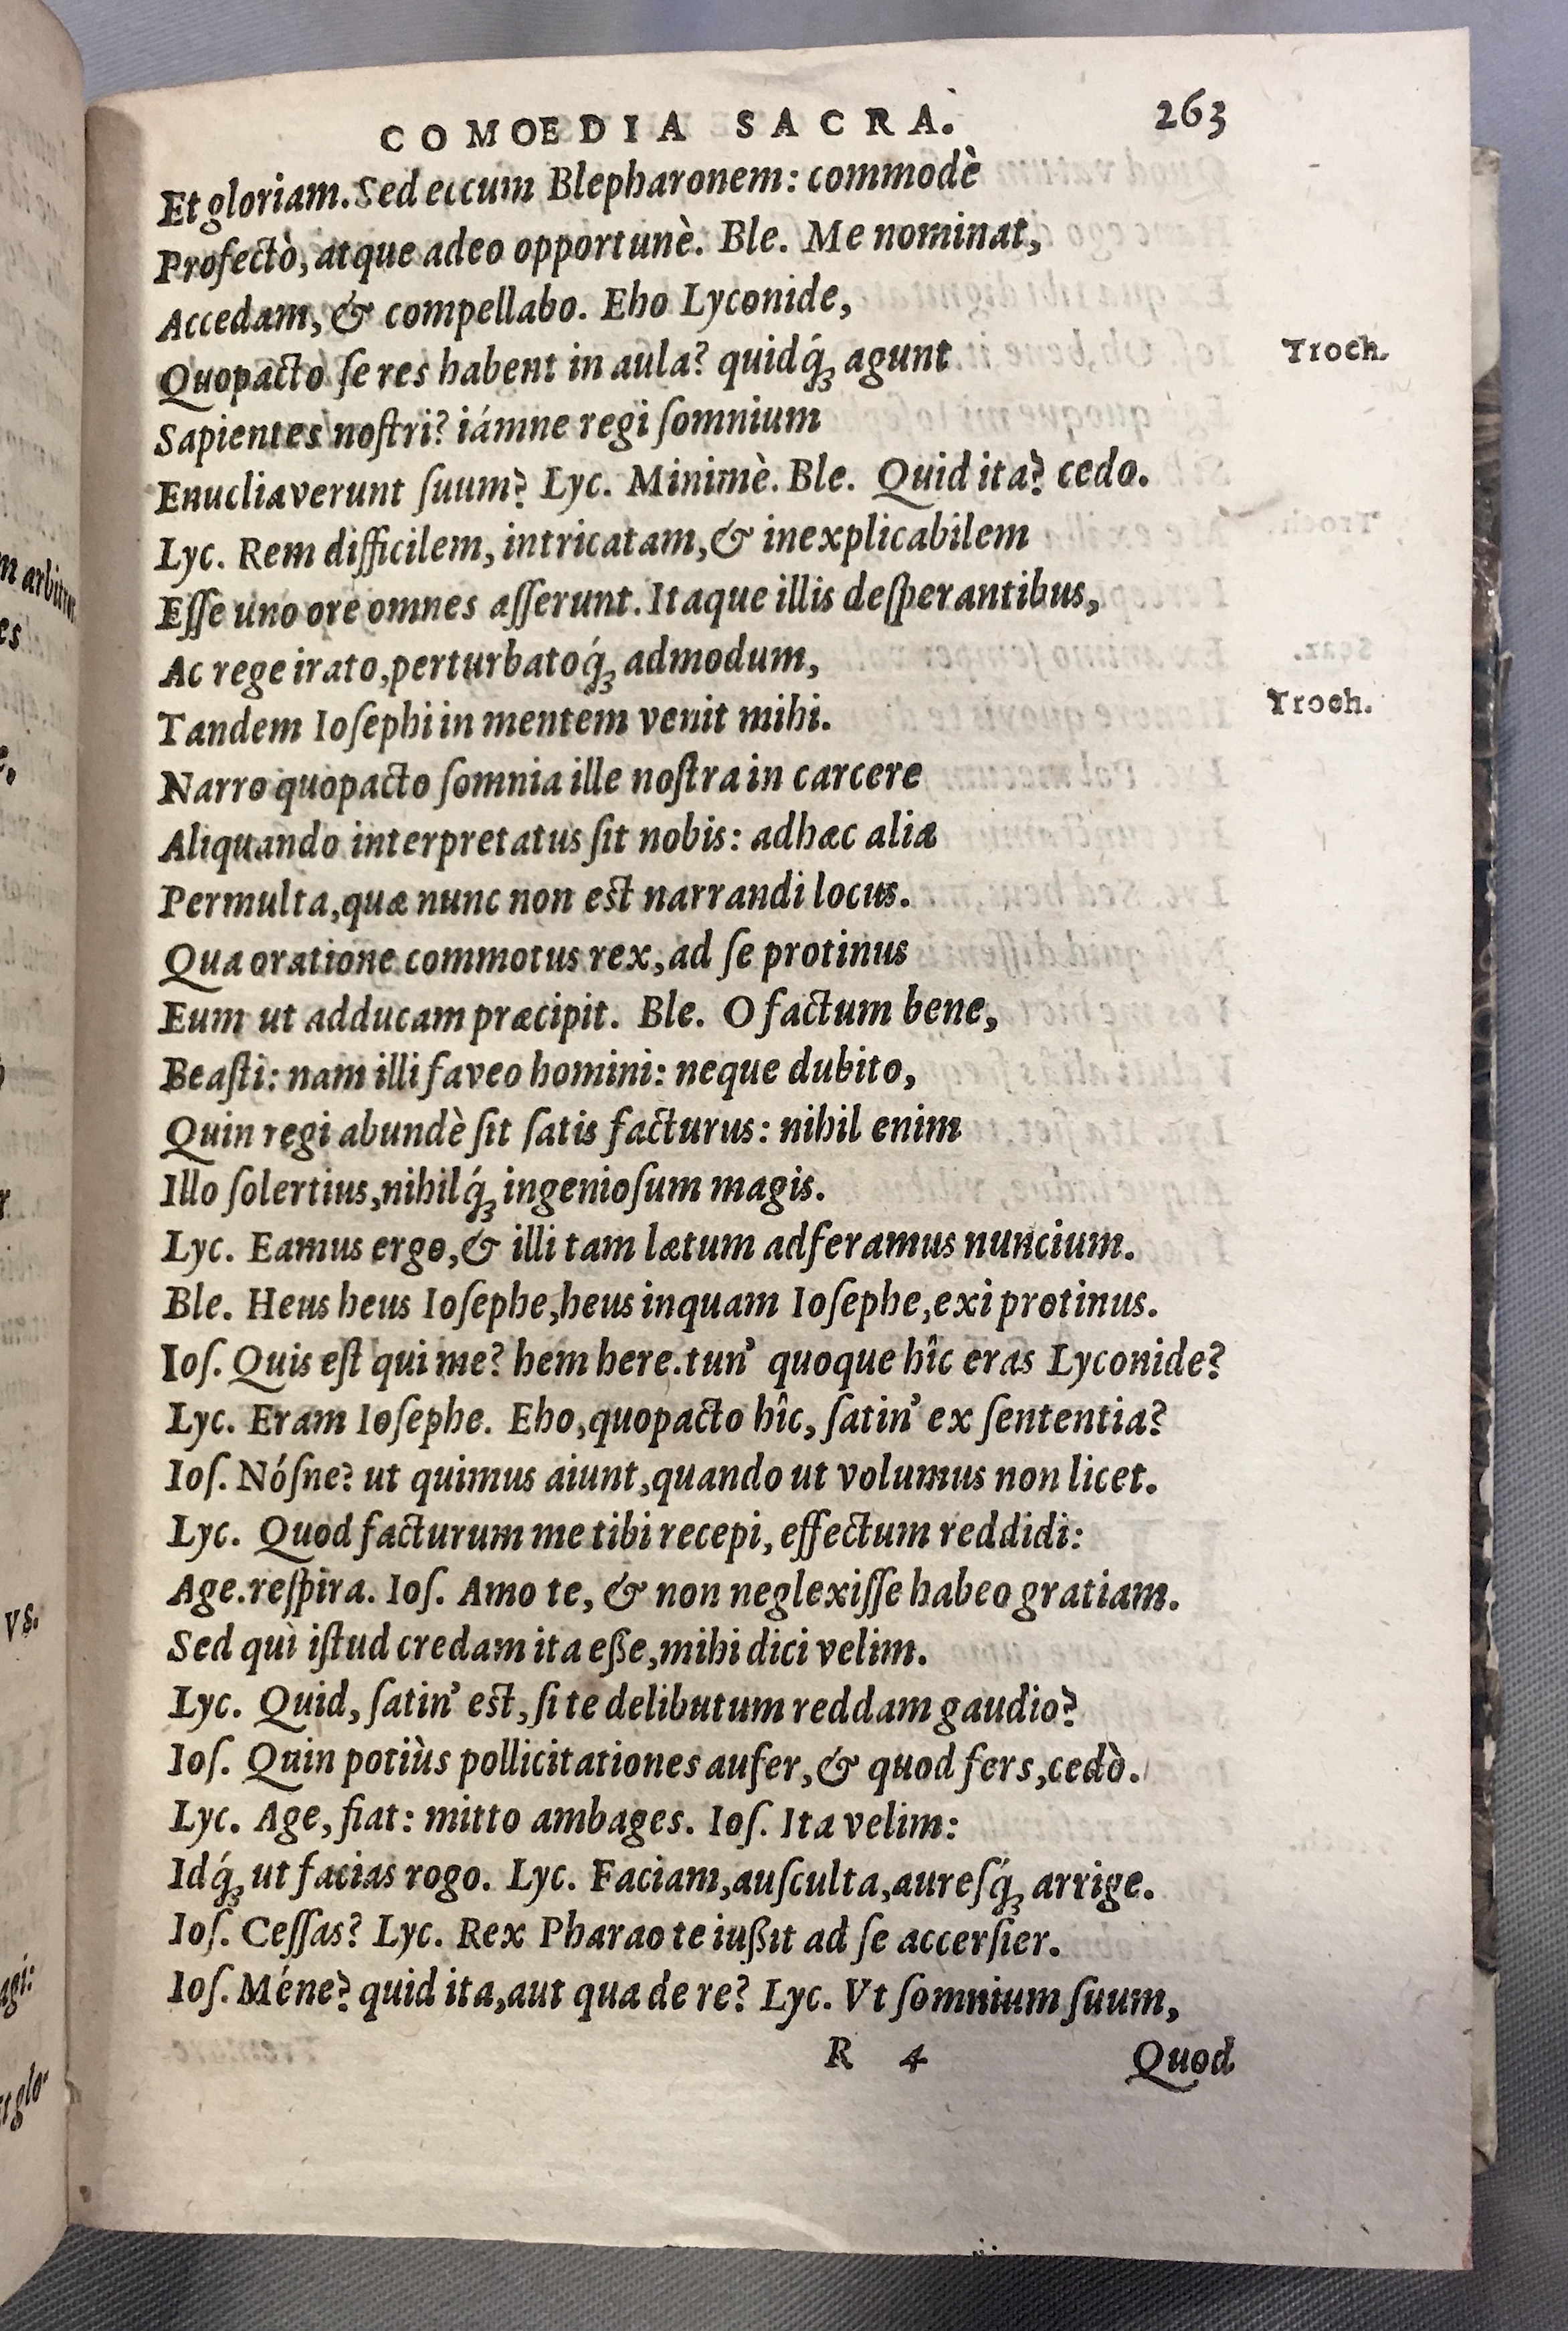 COMOEDIA SACRA. 263
Et gloriam. Sed eccum Blepharonem: commodè
Profectò, atque adeo opportunè. Ble. Me nominat,
Accedam, & compellabo. Eho Lyconide,
Quopacto ſe res habent in aula? quidq́; agunt Troch.
Sapientes noſtri? iámne regi ſomnium
Enucliaverunt ſuum? Lyc. Minimè. Ble. Quid ita? cedo.
Lyc. Rem difficilem, intricatam, & inexplicabilem
Eſſe uno ore omnes aſſerunt. Itaque illis deſperantibus,
Ac rege irato, perturbatoq́; admodum,
Tandem Ioſephi in mentem venit mihi. Troch.
Narro quopacto ſomnia ille noſtra in carcere
Aliquando interpretatus ſit nobis: adhæc alia
Permulta, quæ nunc non est narrandi locus.
Qua oratione commotus rex, ad ſe protinus
Eum ut adducam præcipit. Ble. O factum bene,
Beaſti: nam illi faveo homini: neque dubito,
Quin regi abundè ſit ſatis facturus: nihil enim
Illo ſolertius, nihilq́; ingenioſum magis.
Lyc. Eamus ergo, & illi tam lætum adferamus nuncium.
Ble. Heus heus Ioſephe, heus inquam Ioſephe, exi protinus.
Ioſ. Quis eſt qui me? hem here. tun' quoque hîc eras Lyconide?
Lyc. Eram Ioſephe. Eho, quopacto hîc, ſatin' ex ſententia?
Ioſ. Nóſne? ut quimus aiunt, quando ut volumus non licet.
Lyc. Quod facturum me tibi recepi, effectum reddidi:
Age. reſpira. Ioſ. Amo te, & non neglexiſſe habeo gratiam.
Sed quì iſtud credam ita eße, mihi dici velim.
Lyc. Quid, ſatin' est, ſi te delibutum reddam gaudio?
Ioſ. Quin potiùs pollicitationes aufer, & quod fers, cedò.
Lyc. Age, fiat: mitto ambages. Ioſ. Ita velim:
Idq́; ut facias rogo. Lyc. Faciam, auſculta, aureſq́; arrige.
Ioſ. Ceſſas? Lyc. Rex Pharao te iußit ad ſe accerſier.
Ioſ. Méne? quid ita, aut qua de re? Lyc. Vt ſomnium ſuum,
R 4 Quod